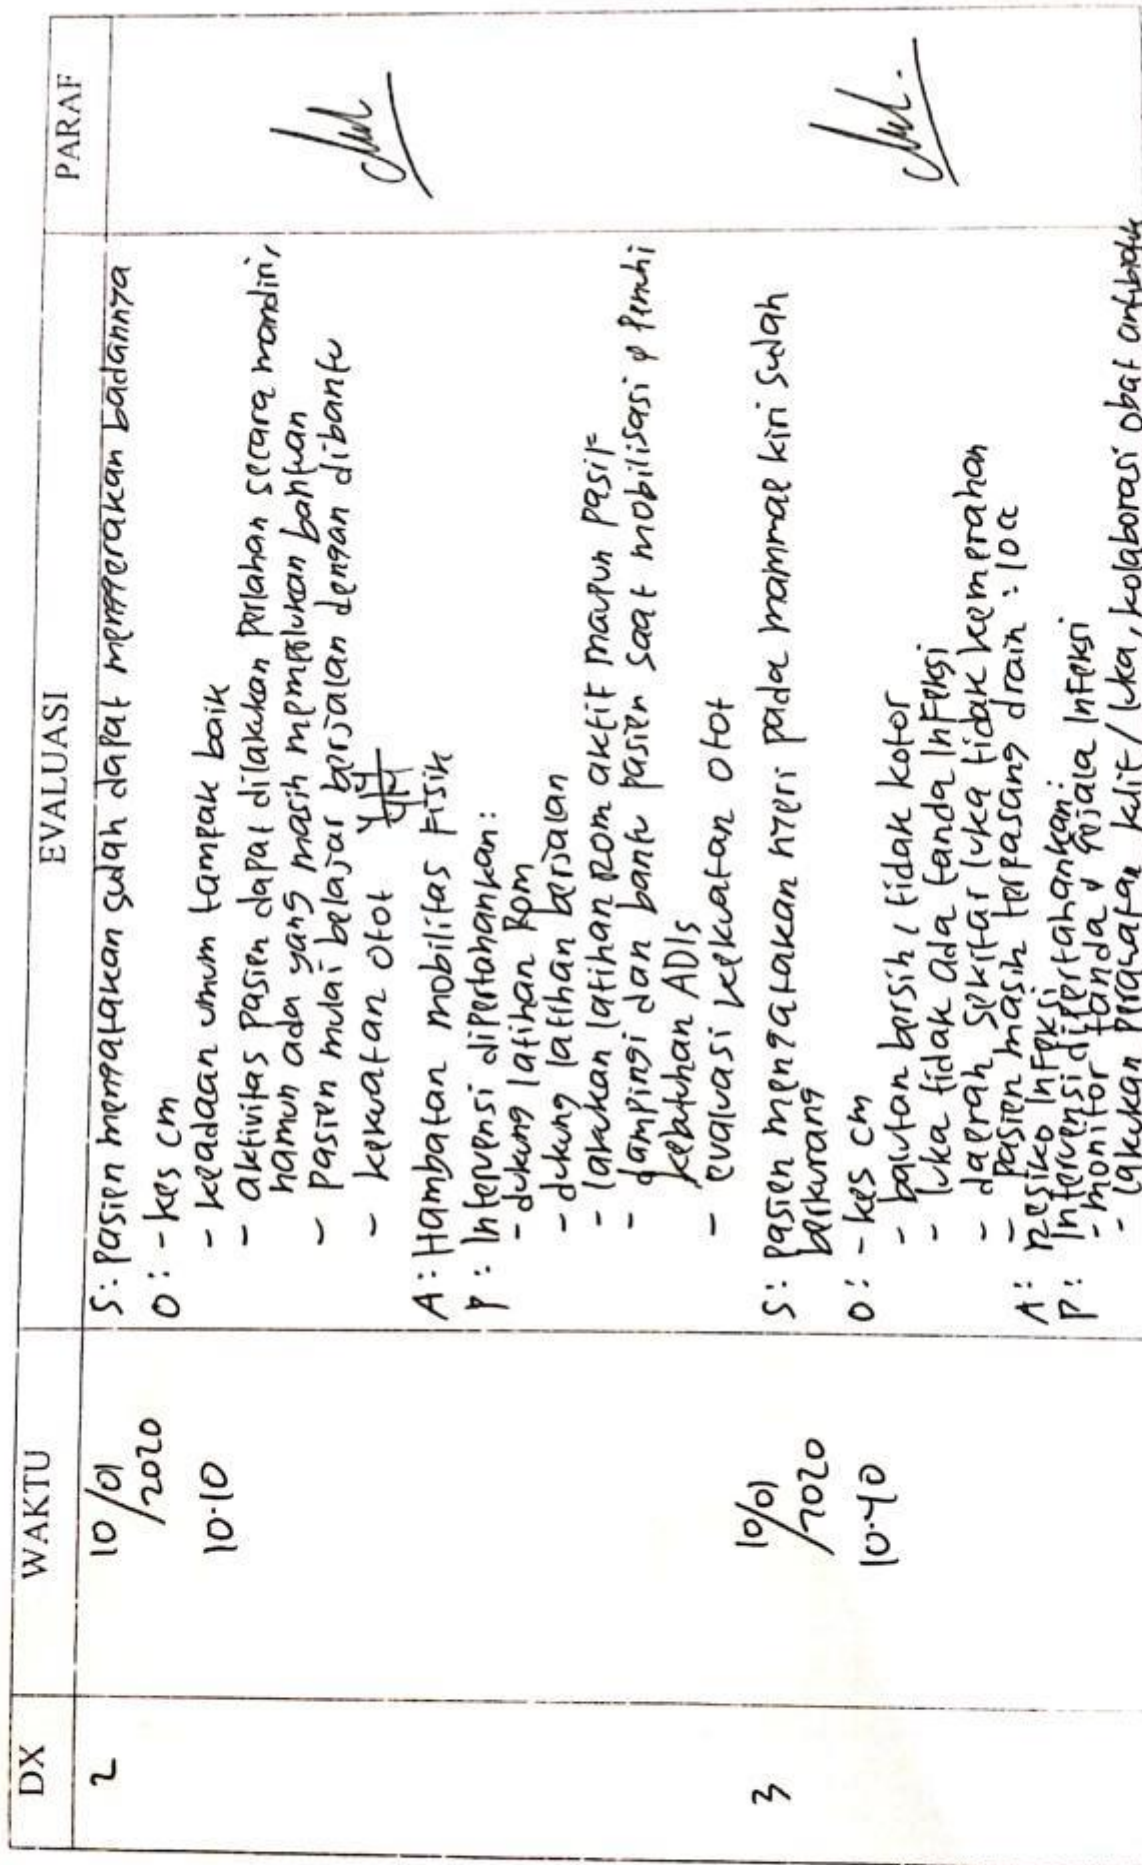 DX WAKTU EVALUASI PARAF
2 10/01/2020 10.10
S: Pasien mengatakan sudah dapat menggerakan badannya
O: - kes cm
- keadaan umum tampak baik
- aktivitas pasien dapat dilakukan perlahan secara mandiri,
namun ada yang masih memerlukan bantuan
- pasien mulai belajar berjalan dengan dibantu
- kekuatan otot
A: Hambatan mobilitas fisik
P: Intervensi dipertahankan:
- dukung latihan Rom
- dukung latihan berjalan
- lakukan latihan ROM aktif maupun pasif
- dampingi dan bantu pasien saat mobilisasi & penuhi
kebutuhan ADls
- evaluasi kekuatan otot
3 10/01/2020 10.40
S: Pasien mengatakan nyeri pada mammae kiri sudah
berkurang
O: - kes cm
- balutan bersih, tidak kotor
- luka tidak ada tanda infeksi
- daerah sekitar luka tidak kemerahan
- pasien masih terpasang drain : 10cc
A: Resiko infeksi
P: Intervensi dipertahankan:
- monitor tanda & gejala infeksi
- lakukan perawatan kulit / luka, kolaborasi obat antibiotik